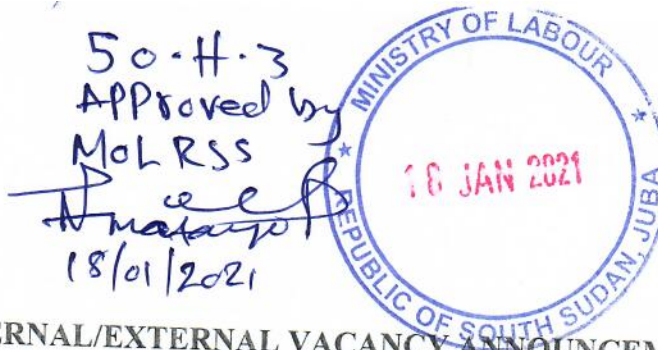 50.H.3
APProved by
MOL RSS
18/01/2021
MINISTRY OF LABOUR
18 JAN 2021
REPUBLIC OF SOUTH SUDAN, JUBA
ERNAL/EXTERNAL VACANCY ANNOUNCEM